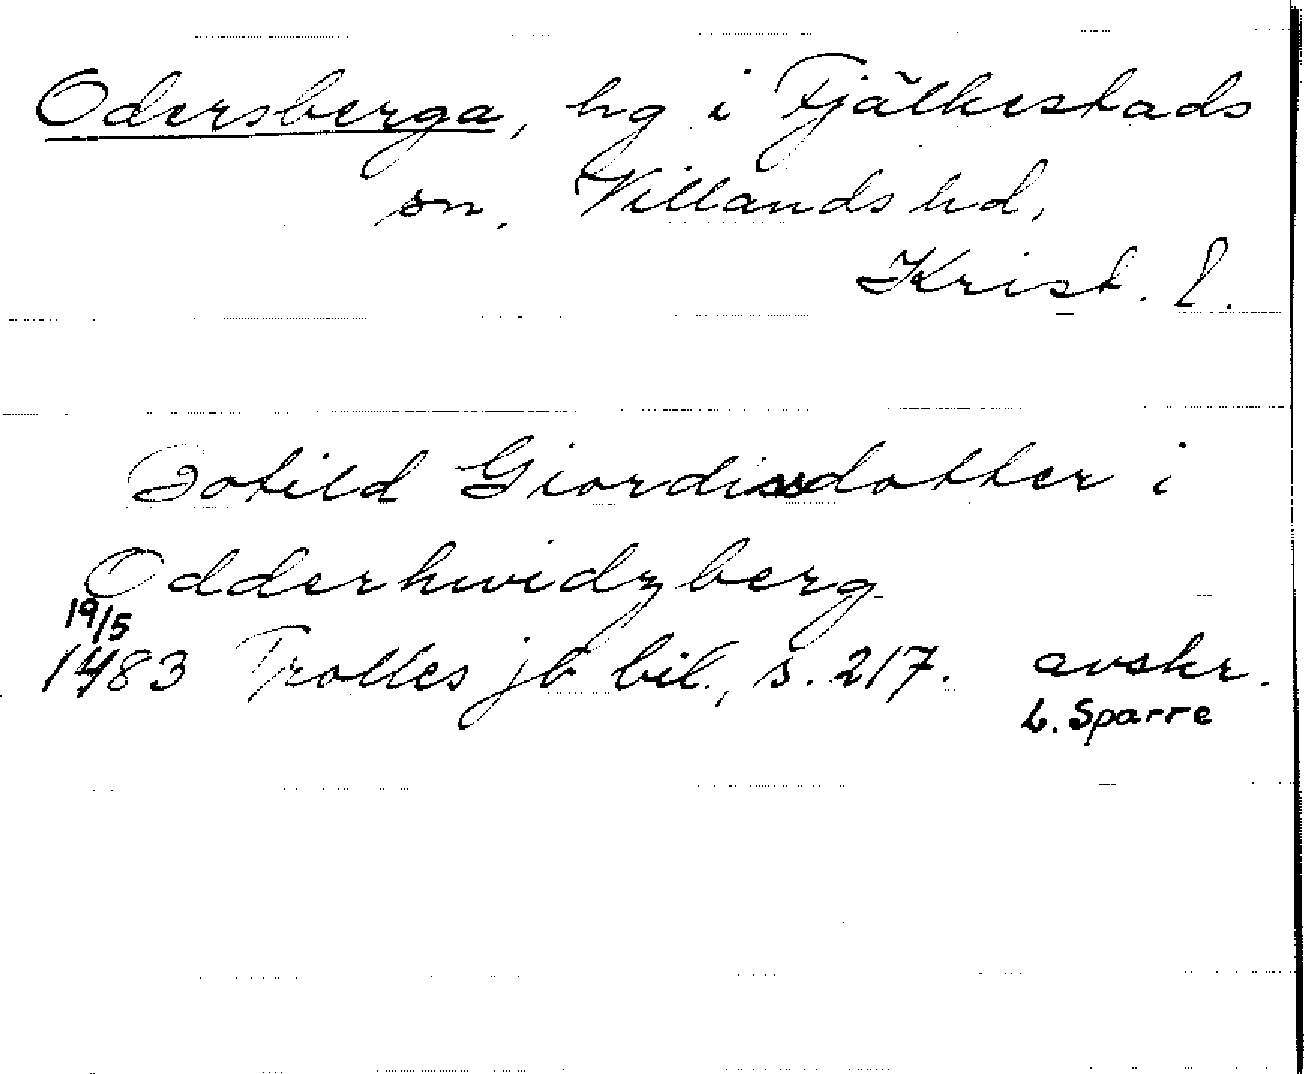 Odersberga, hg i Fjälkestads
sn. Villands hd,
Krist. l.
Botild Giordissdotter i
Odderhwidzberg
19/5
1483 Trolles jb bil., s. 217. avskr.
L. Sparre